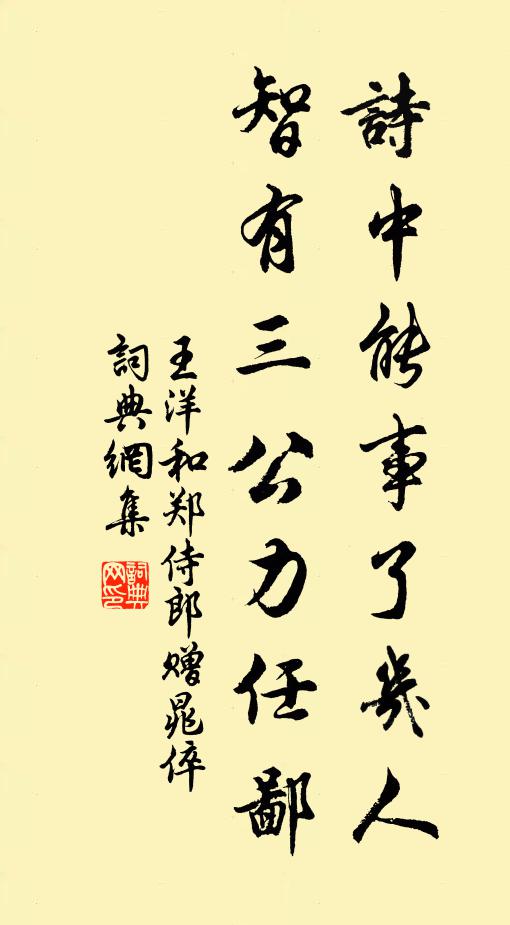 詩中能事了幾人
智有三公力任鄙
王洋和郑侍郎赠晁倅
詞典網集
詞典网印